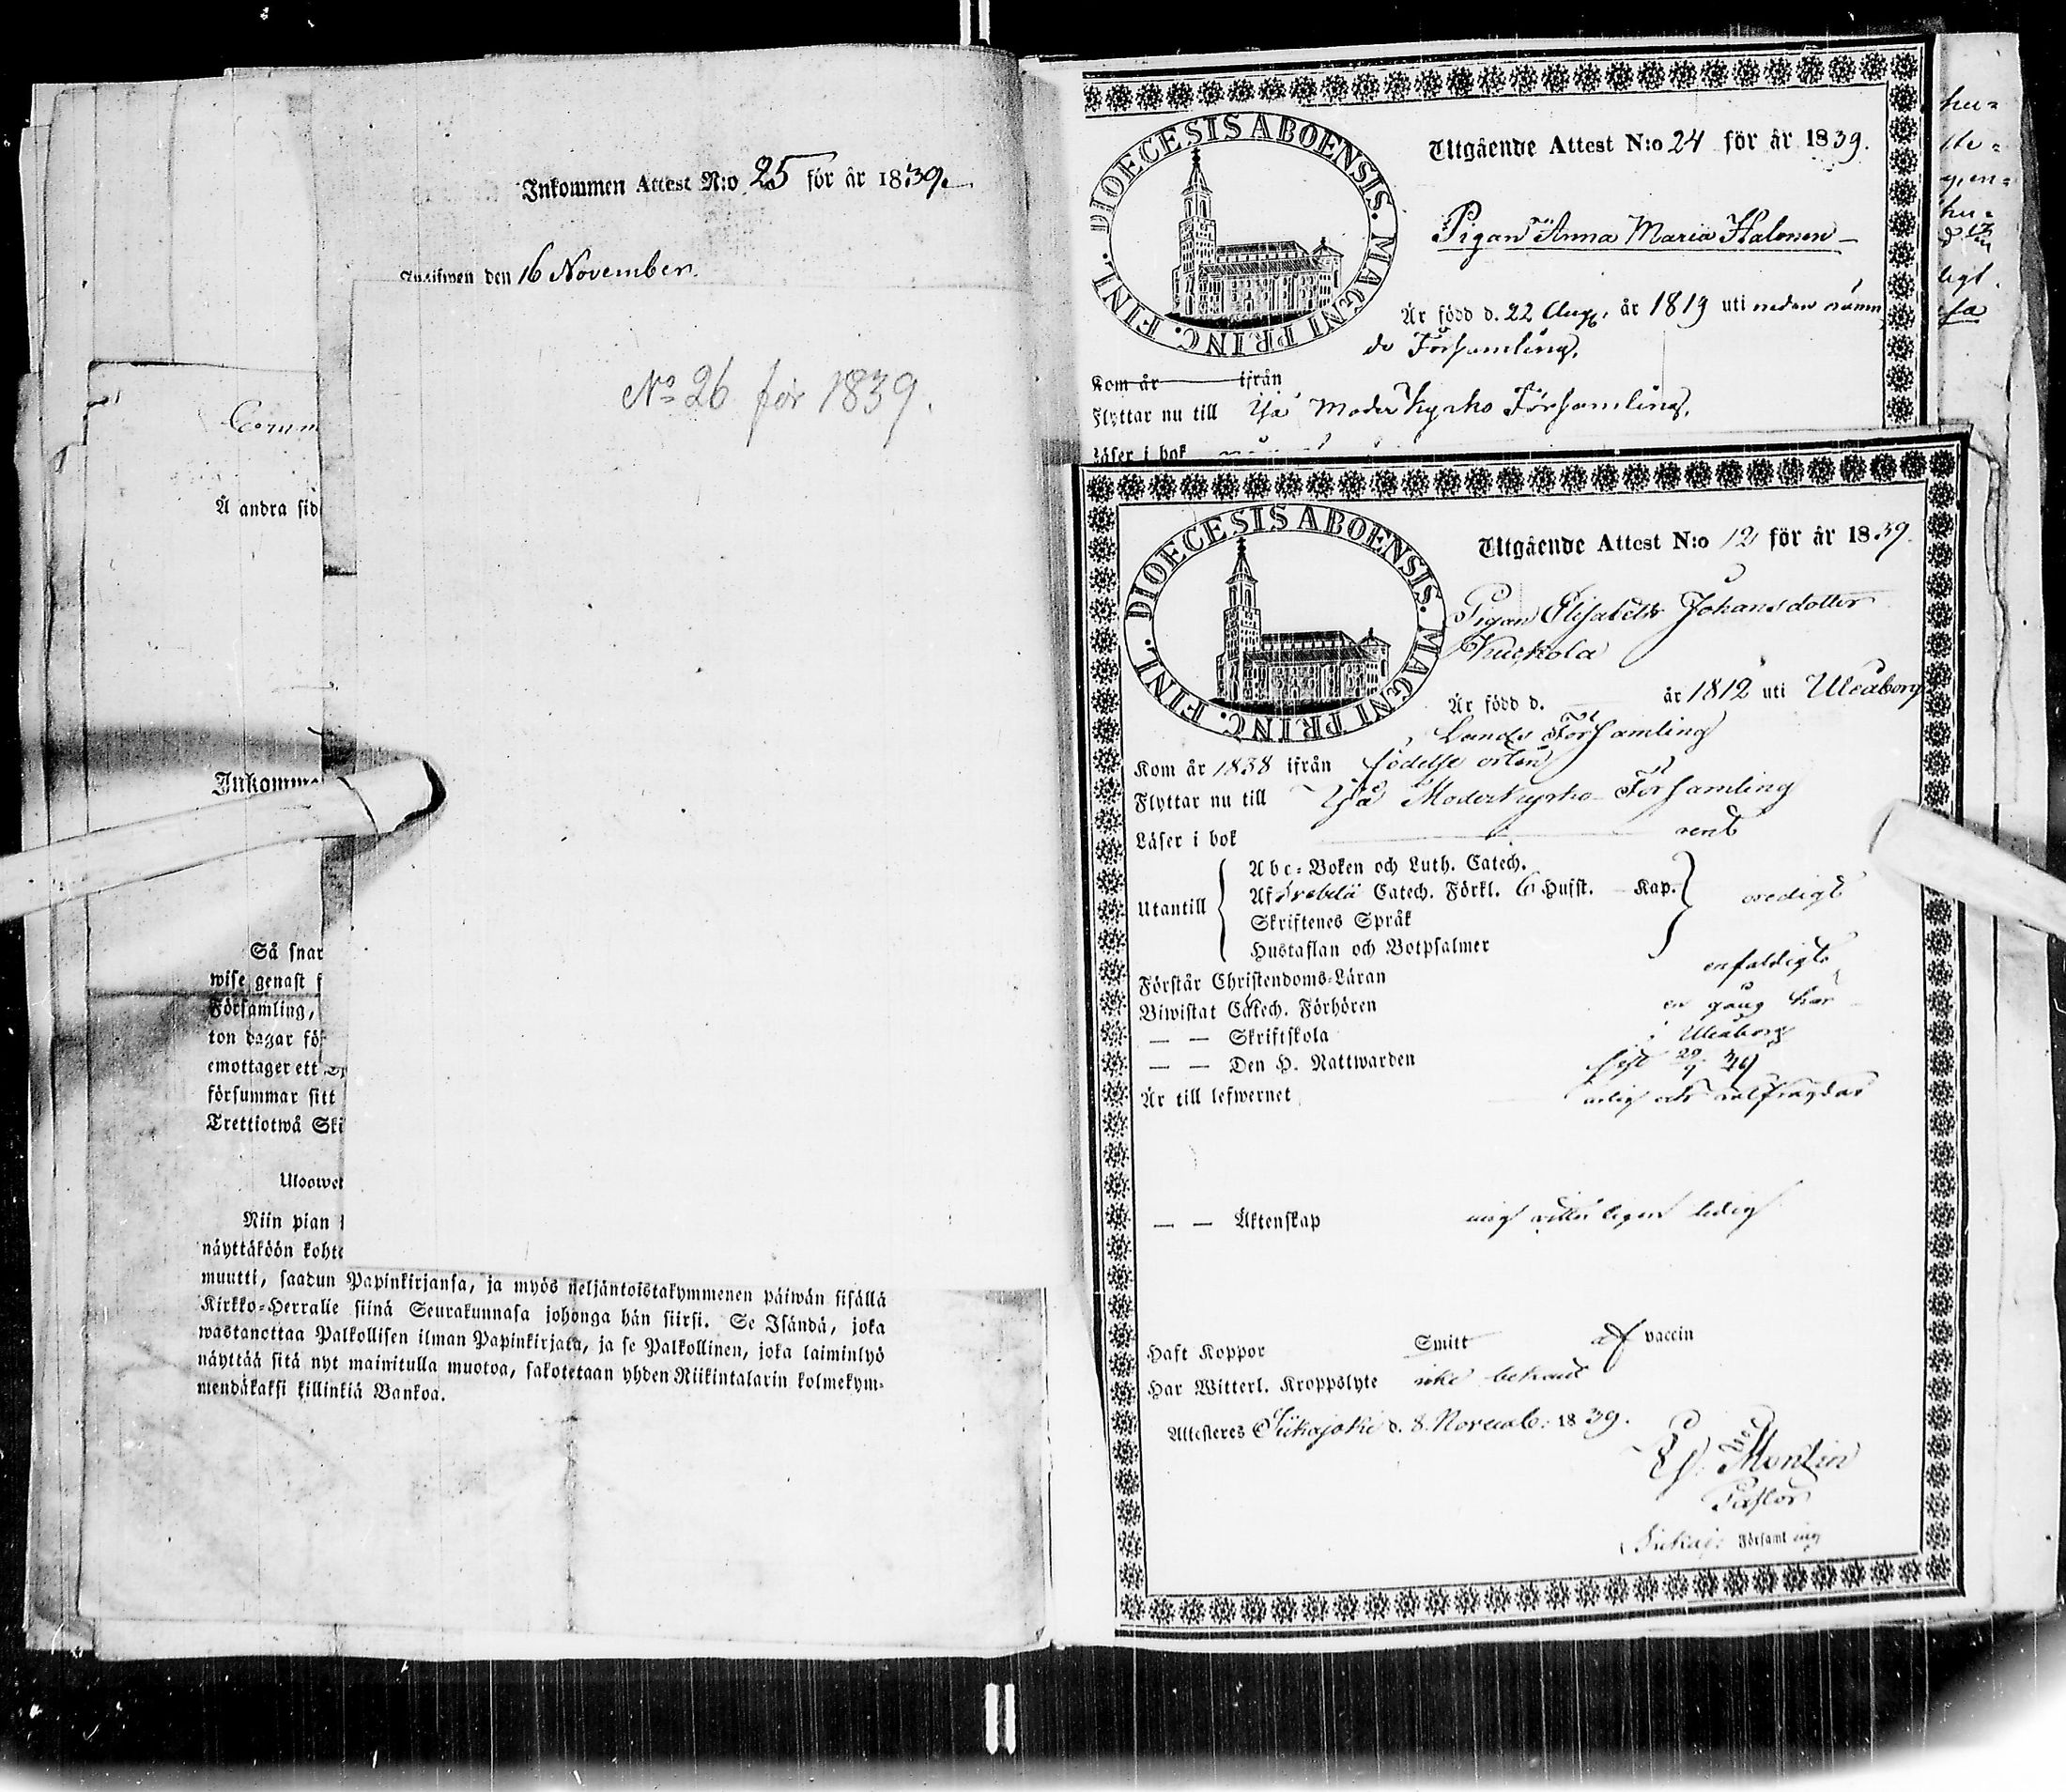 Inkommen Attest N:o 25 för år 1839.
Inskrifwen den 16 November.
No 26 för 1839.
Comm
Å andra sid
Inkomme
Så snar
wise genast f
Församling,
ton dagar för
emottager ett
försummar sitt
Trettiotwå Ski
Uloswet
Niin pian
näyttäköön kohte
muutti, saadun Papinkirjansa, ja myös neljäntoistakymmenen päiwän sisällä
Kirkko-Herralle siinä Seurakunnasa johonga hän siirsi. Se Isändä, joka
wastanottaa Palkollisen ilman Papinkirjata, ja se Palkollinen, joka laiminlyö
näyttää sitä nyt mainitulla muotoa, sakotetaan yhden Riikintalarin kolmekym-
mendäkaksi killinkiä Bankoa.
DIOECESIS ABOENSIS. MAGNI PRINC. FINL.
Utgående Attest N:o 24 för år 1839.
Pigan Anna Maria Halonen
Är född d. 22 Aug. år 1819 uti nedan nämn
de Församling.
Kom år ifrån
Flyttar nu till Ijå Moder Kyrko Församling.
Läser i bok
hu=
tte=
gen=
hu=
ligt.
fa
DIOECESIS ABOENSIS. MAGNI PRINC. FINL.
Utgående Attest N:o 12 för år 1839.
Pigan Elisabeth Johansdotter
Kuckola
Är född d. år 1812 uti Uleåborg
Lands Församling
Kom år 1838 ifrån födelse orten
Flyttar nu till Ijå Moderkyrko Församling
Läser i bok rent
Utantill
Abc-Boken och Luth. Catech.
Af Svebelii Catech. Förkl. 6 Hufst. Kap.
Skriftenes Språk
Hustaflan och Botpsalmer
redigt
Förstår Christendoms-Läran enfaldigt
Biwistat Catech. Förhören en gång här
— — Skriftskola i Uleåborg
— — Den H. Nattwarden sist 29/9 39
Är till lefwernet ärlig och välfrägdad
— — Äktenskap mig vitterligen ledig
Haft Koppor Smitt af vaccin
Har Witterl. Kroppslyte icke bekant
Attesteres Siikajoki d. 8. Novemb: 1839.
Montin
Pastor
Siikaj: Församling